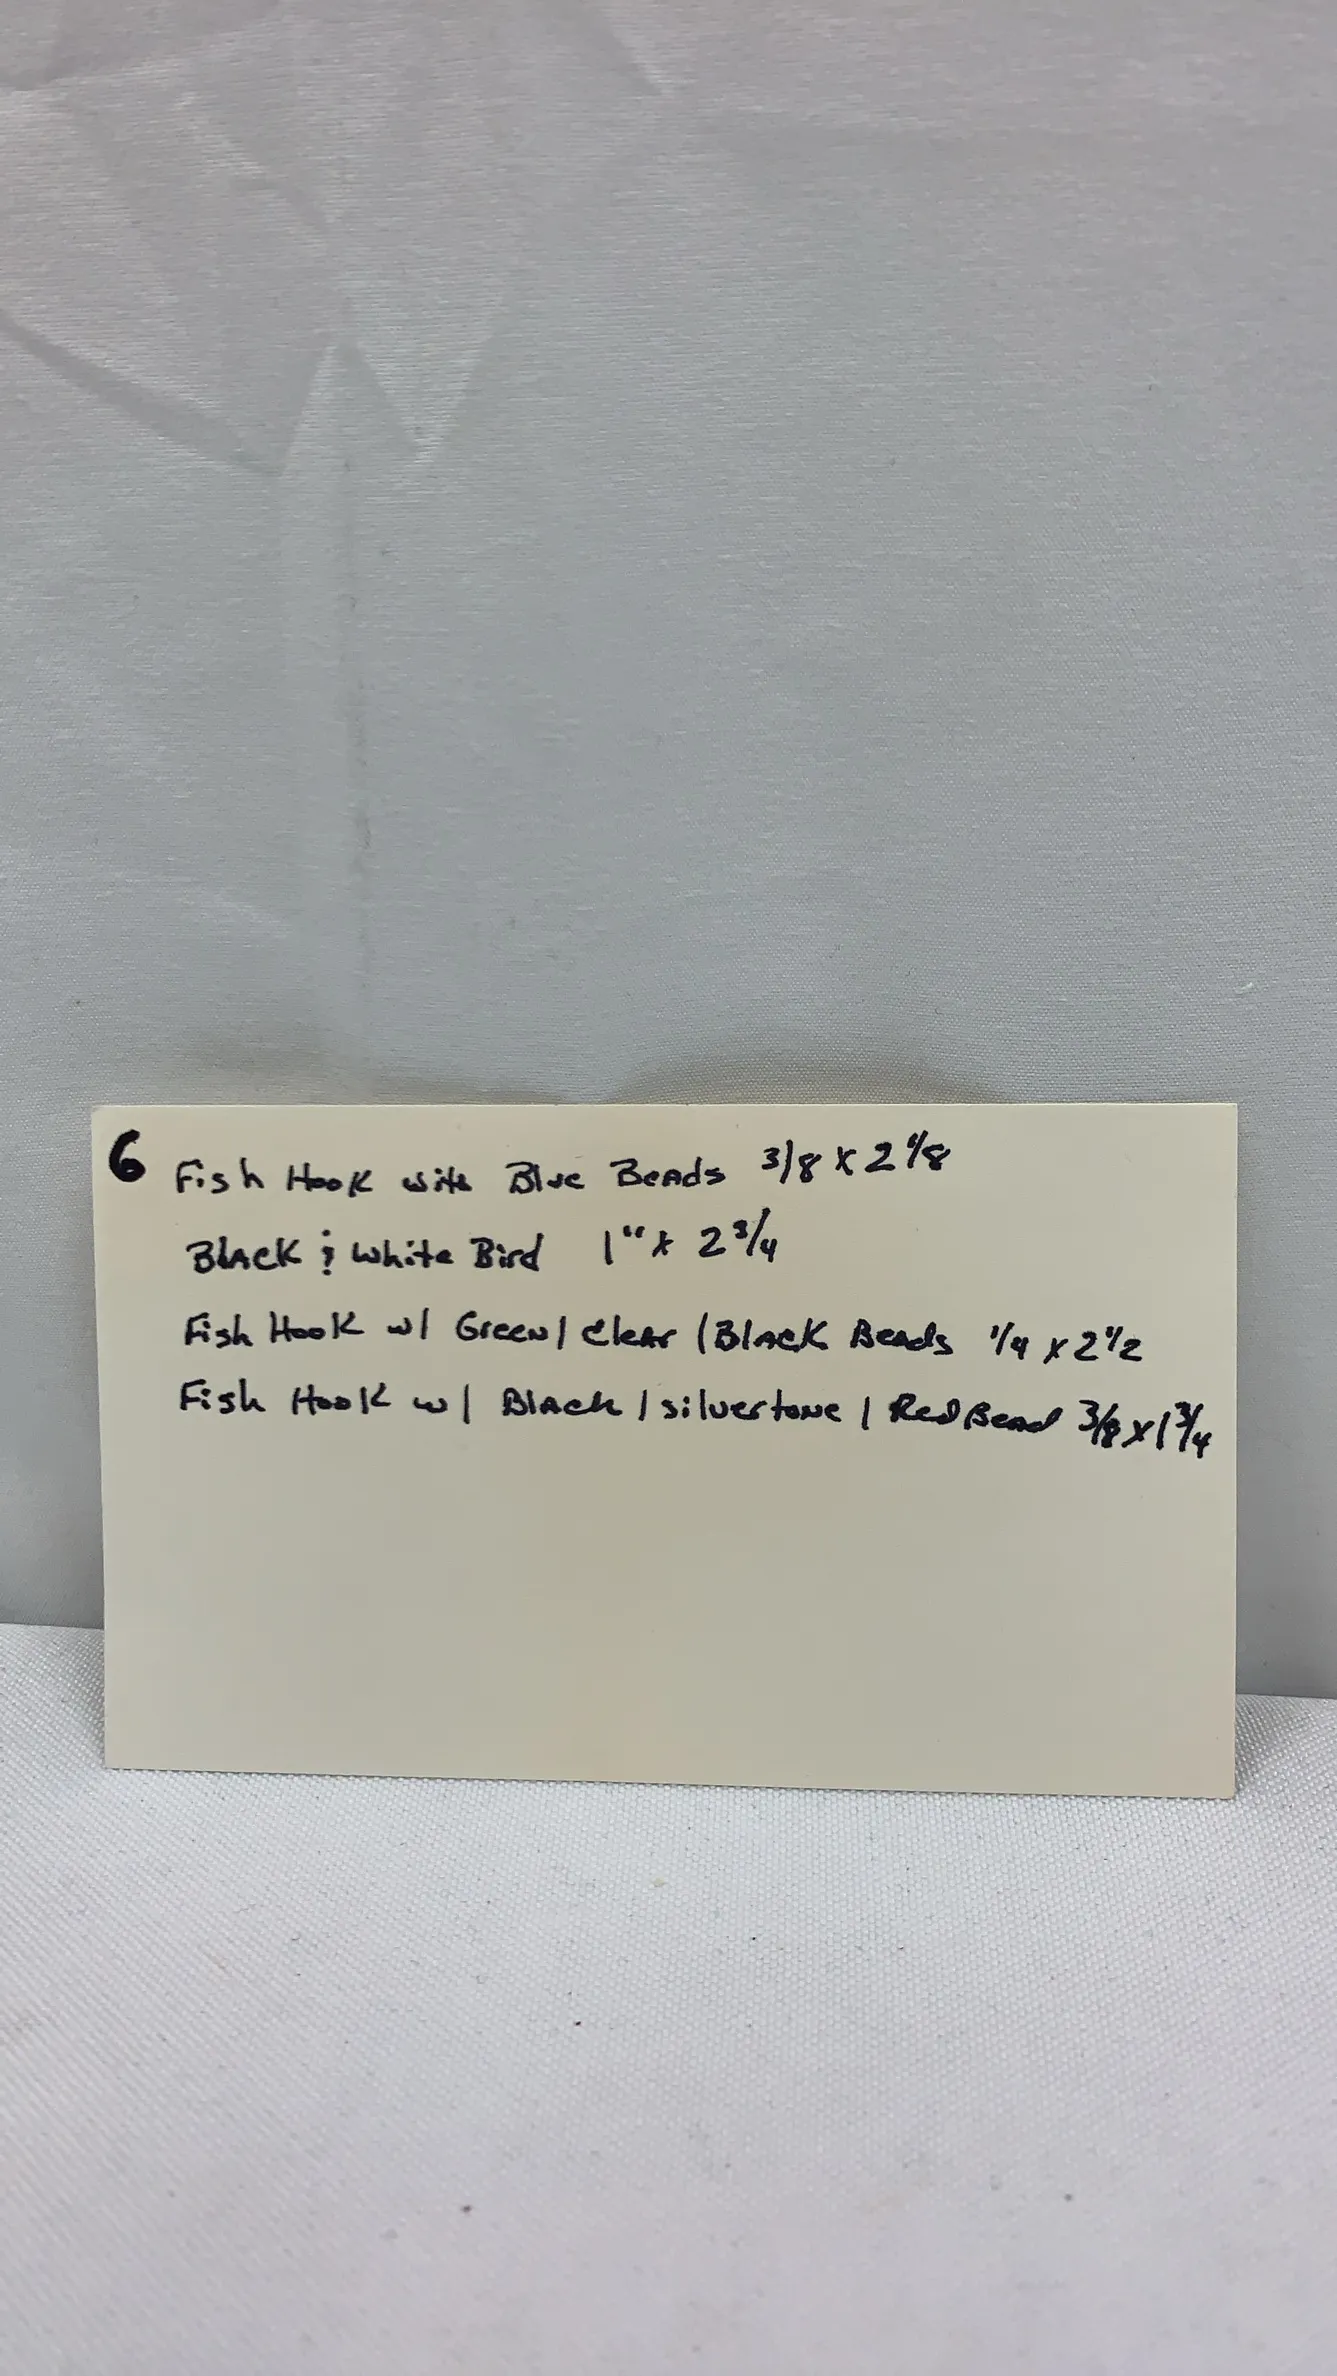 6 Fish Hook with Blue Beads 3/8 x 2 1/8
Black & White Bird 1" x 2 3/4
Fish Hook w/ Green/Clear/Black Beads 1/4 x 2 1/2
Fish Hook w/ Black/silvertone/Red Bead 3/8 x 1 3/4